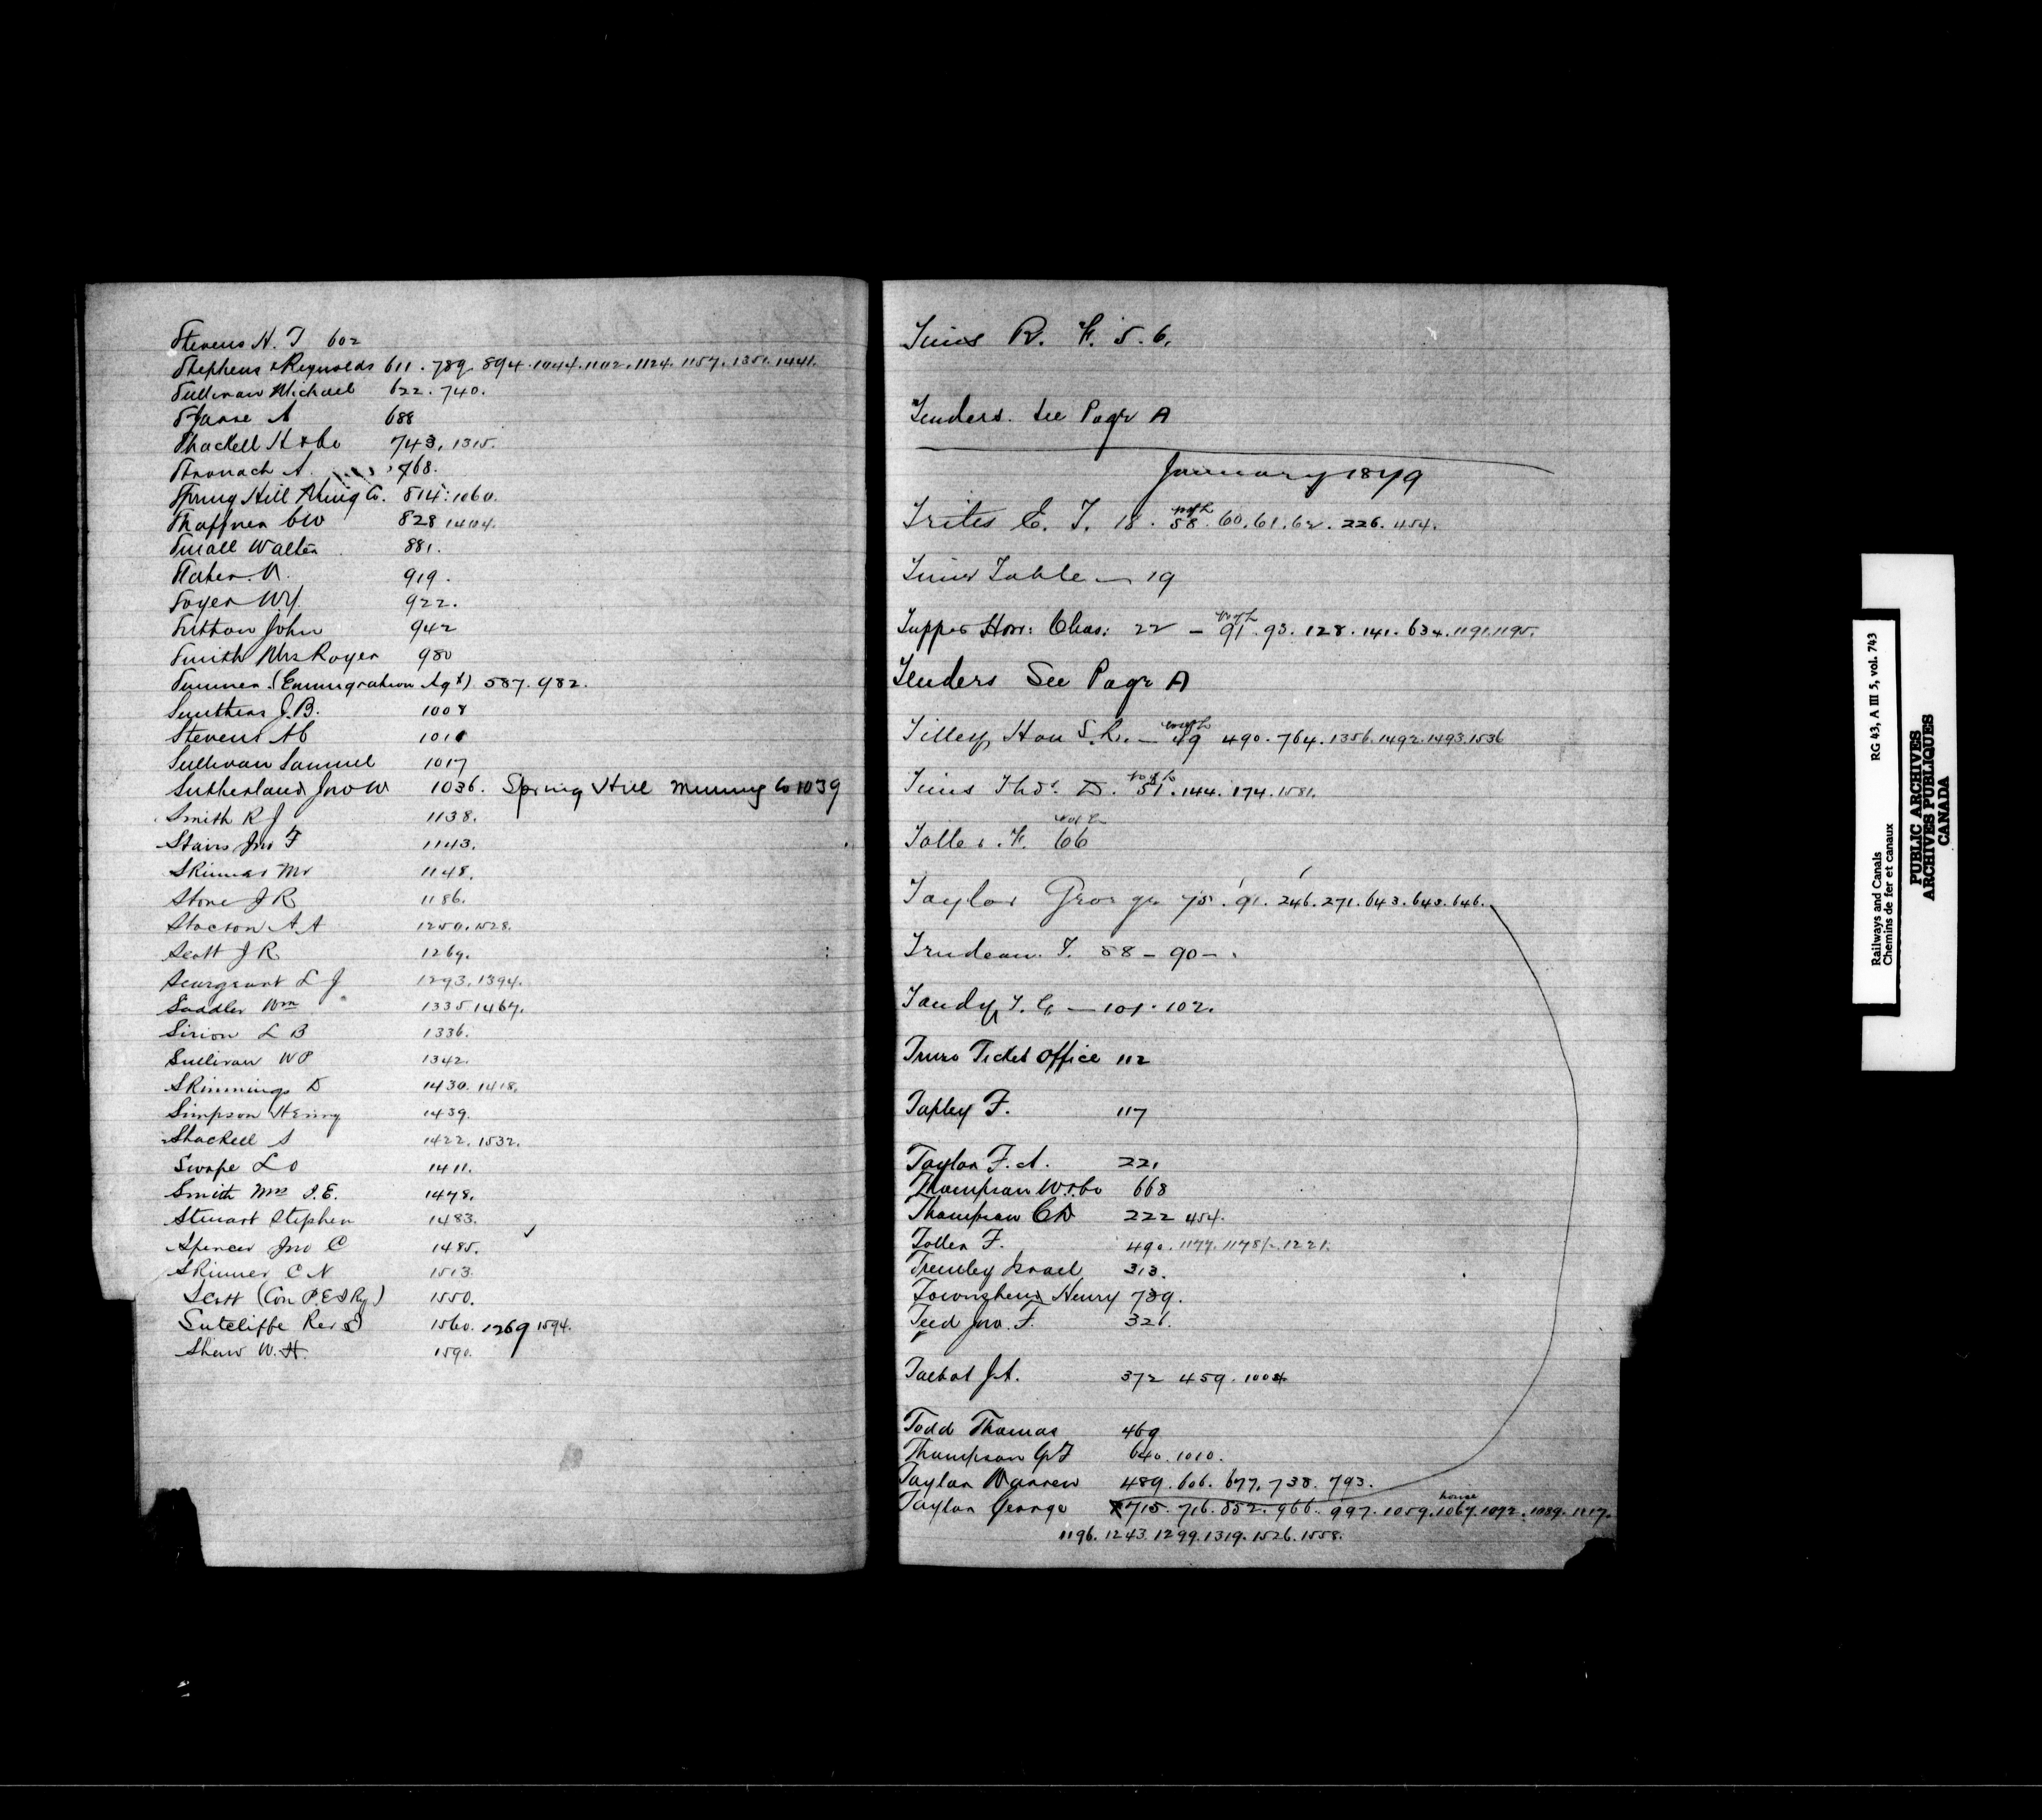 Stevens H. T 602
Stephens & Reynolds 611. 789. 894. 1044. 1102. 1124. 1157. 1351. 1441.
Sullivan Michael 622. 740.
A 688
Shackell H & Co 743, 1315.
Stronach A. 768.
Spring Hill Ming Co. 814. 1060.
Shaffner CW 828 1404.
Small Walter 881.
919.
W. 922.
Sutton John 942
Smith Mrs Roger 980
Sumner (Emmigration Agt) 587. 982.
Smithers J. B. 1008
Stevens
Sullivan Samuel 1017
Sutherland Jno W 1036. Spring Hill Mining Co 1039
Smith R J 1138.
Stairs Jno F 1143.
Skinner Mr 1148.
Stone J R 1186.
Stocton A A 1250. 1528.
Scott J R 1269.
L J 1293. 1394.
Saddler Wm 1335 1467.
Sirion L B 1336.
Sullivan W P 1342.
Skimmings D 1430. 1418.
Simpson Henry 1439.
Shackell S 1422. 1532.
Swope L O 1411.
Smith Mrs J. E. 1478.
Stewart Stephen 1483.
Spencer Jno C 1485.
Skinner C N 1513.
Scott (Con P. E I Ry) 1550.
Sutcliffe Rev 1560. 1269 1594.
Shaw W. H. 1590.
Tims R. F. 5. 6.
Tenders. See Page A
January 1879
Trites E. T. 18. 58. 60. 61. 62. 226. 454.
Time Table — 19
Tupper Hon: Chas: 22 — 91. 93. 128. 141. 634. 1191. 1195.
Tenders See Page A
Tilley Hon S. L. — 49 490. 764. 1356. 1492. 1493. 1536
Tims Thos. D. 51. 144. 174. 1581.
Toller. F. 66
Taylor George 75. 91. 246. 271. 643. 645. 646.
Trudeau. T. 88 — 90 —
Tandy T. G — 101. 102.
Truro Ticket Office 112
Tapley F. 117
Taylor F. A. 221
Thompson W. & Co 668
Thompson C D 222 454.
Toller F. 490. 1177. 1178 1/2. 1221.
Tremley Israel 313.
Henry 789.
Teed Jno. F. 326.
Talbot J. A. 372 459. 1004
Todd Thomas 469
Thompson G F 640. 1010.
Taylor Warren 489. 606. 677. 738. 793.
house
Taylor George 715. 716. 852. 966. 997. 1059. 1067. 1072. 1089. 1117.
1196. 1243. 1299. 1319. 1526. 1558.
Railways and Canals RG 43, A III 5, vol. 743
Chemins de fer et canaux
PUBLIC ARCHIVES
ARCHIVES PUBLIQUES
CANADA